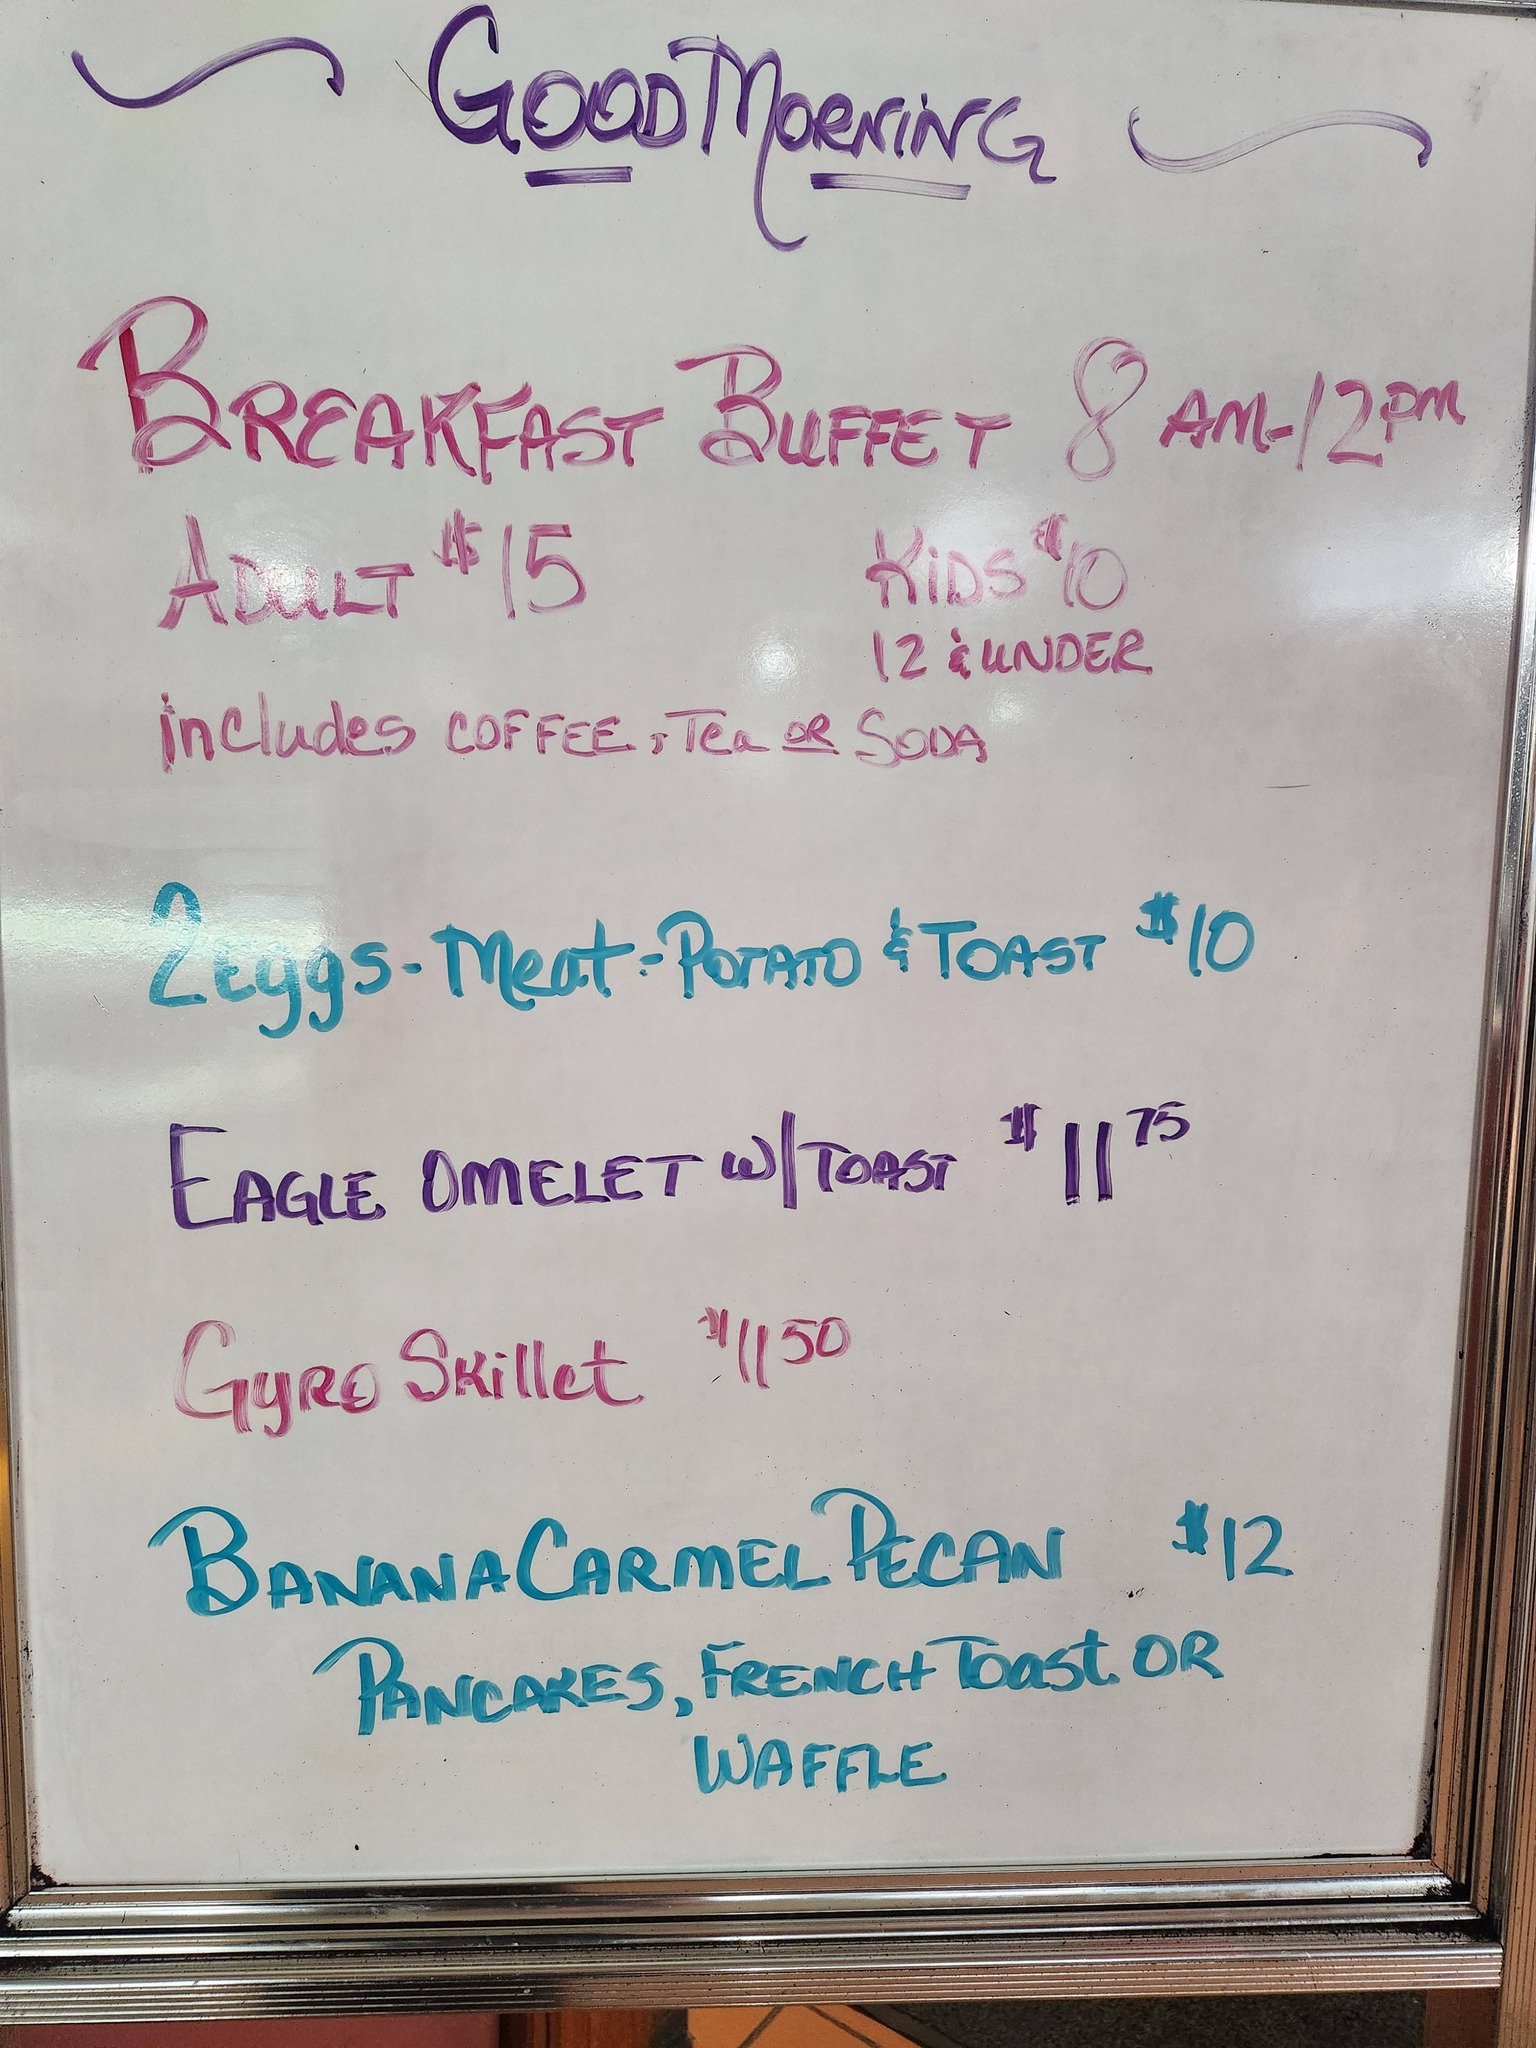 GOOD MORNING
BREAKFAST BUFFET 8 AM-12PM
ADULT $15 KIDS $10
12 & UNDER
includes COFFEE, Tea OR SODA
2 eggs - Meat - POTATO & TOAST $10
EAGLE OMELET W/TOAST $11 75
GYRO Skillet $11 50
BANANA CARMEL PECAN $12
PANCAKES, FRENCH Toast OR
WAFFLE